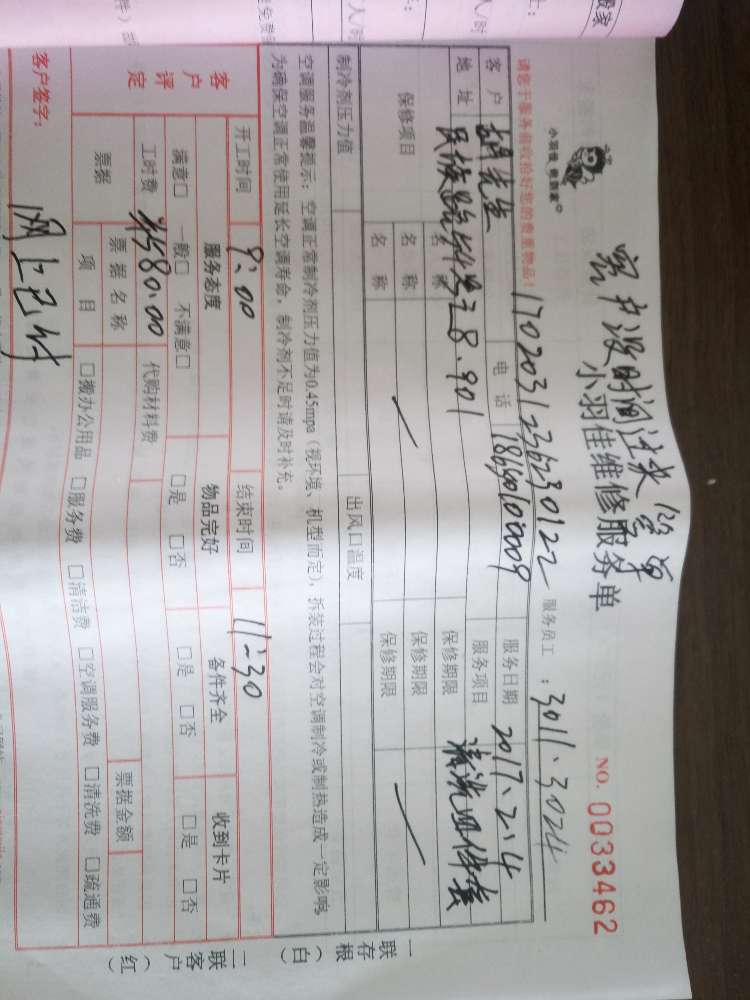 客户没时间过来签单
小羽佳维修服务单
NO. 0033462
小羽佳 爱到家
1702031236230122
服务员工：3011.3024
请您于服务前收拾好您的贵重物品！
客户 胡先生 电话 18650100009 服务日期 2017.2.4
地址 服务项目 清洗四件套
保修项目 名称 保修期限
名称 保修期限
名称 保修期限
制冷剂压力值 出风口温度
空调服务温馨提示：空调正常制冷剂压力值为0.45mpa（视环境、机型而定），拆装过程会对空调制冷或制热造成一定影响，
为确保空调正常使用延长空调寿命，制冷剂不足时请及时补充。
开工时间 9:00 结束时间 11:30
客户评定 服务态度 物品完好 备件齐全 收到卡片
满意□ 一般□ 不满意□ □是 □否 □是 □否 □是 □否
工时费 ¥580.00 代购材料费
票据 票据名称 票据金额
项目 □搬办公用品 □服务费 □清洁费 □空调服务费 □清洗费 □疏通费
客户签字：网上已付
一联存根（白）
二联客户（红）